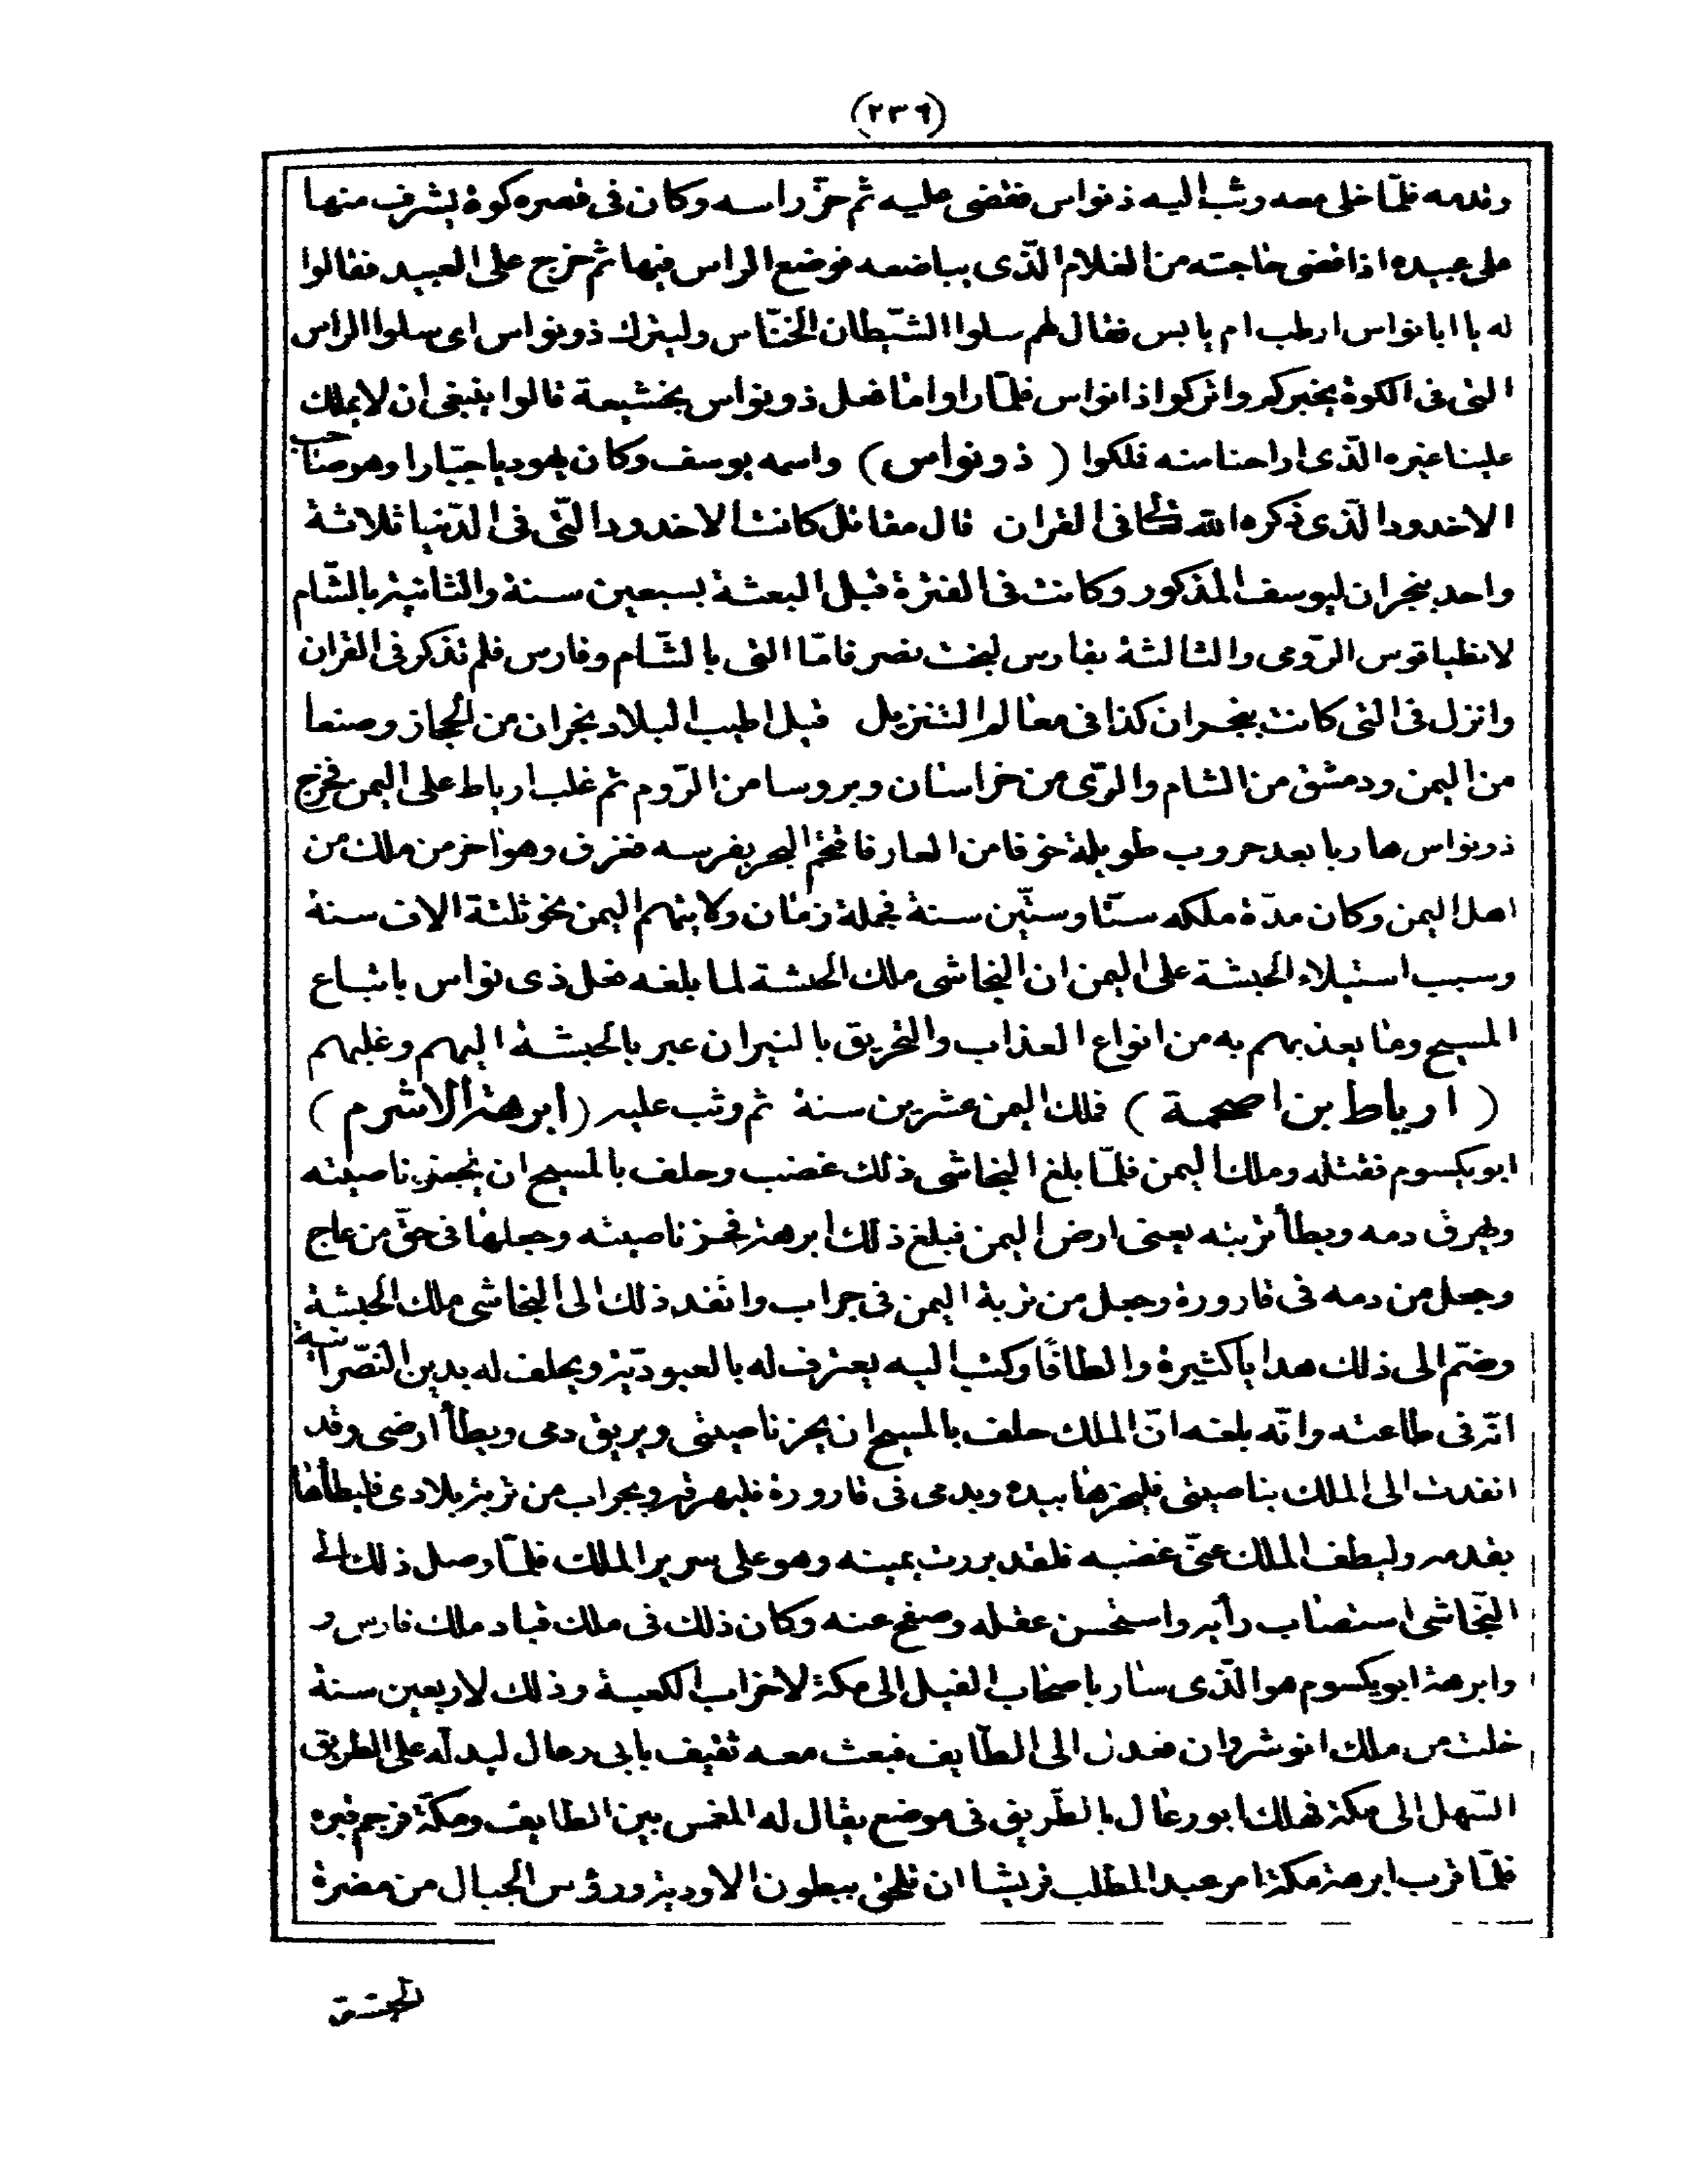 (٢٣٦)
وقدمه فلمّا خلى معه وثب اليه ذنواس فقضى عليه ثم حزّ راسه وكان فى قصره كوة يشرف منها
على عبيده اذا قضى حاجته من الغلام الّذى يباضعه فوضع الراس فيها ثم خرج على العبيد فقالوا
له يا ابا نواس ارطب ام يابس فقال لهم سلوا الشّيطان الخنّاس وليترك ذو نواس اى سلوا الراس
التى فى الكوة يخبركم واتركوا ذا نواس فلمّا راوا ما فعل ذو نواس بخنشيعة قالوا ينبغى ان لا يملك
علينا غيره الّذى اراحنا منه فملكوا ( ذو نواس ) واسمه يوسف وكان يهوديا جبّارا وهو صاحب
الاخدود الّذى ذكره الله تعالى فى القران قال مقاتل كانت الاخدود التّى فى الدّنيا ثلاثة
واحد بنجران ليوسف المذكور وكانت فى الفترة قبل البعثة بسبعين سنة والثانية بالشّام
لانطياقوس الرّومى والثالثة بفارس لبخت نصر فامّا التى بالشّام وفارس فلم تذكر فى القران
وانزل فى التى كانت بنجران كذا فى معالم التنزيل قيل اطيب البلاد نجران من الحجاز وصنعا
من اليمن ودمشق من الشام والرّى من خراسان وبروسا من الرّوم ثم غلب ارباط على اليمن فخرج
ذو نواس هاربا بعد حروب طويلة خوفا من العار فاقتحم البحر بفرسه فغرق وهو اخر من ملك من
اهل اليمن وكان مدّة ملكه ستّا وستّين سنة فجملة زمان ولايتهم اليمن نحو ثلثة الاف سنة
وسبب استيلاء الحبشة على اليمن ان النجاشى ملك الحبشة لما بلغه فعل ذى نواس باتباع
المسيح وما يعذبهم به من انواع العذاب والتحريق بالنيران عبر بالحبشة اليهم وغلبهم
( ارباط بن اصحمة ) فملك اليمن عشرين سنة ثم وثب عليه ( ابرهة الاشرم )
ابو يكسوم فقتله وملك اليمن فلمّا بلغ النجاشى ذلك غضب وحلف بالمسيح ان يجز ناصيته
ويهرق دمه ويطأ تربته يعنى ارض اليمن فبلغ ذلك ابرهة فجز ناصيته وجعلها فى حقّ من عاج
وجعل من دمه فى قارورة وجعل من تربة اليمن فى جراب وانفذ ذلك الى النجاشى ملك الحبشة
وضمّ الى ذلك هدايا كثيرة والطافا وكتب اليه يعترف له بالعبوديّة ويحلف له بدين النصّرانية
انّه فى طاعته وانّه بلغه انّ الملك حلف بالمسيح ان يجز ناصيتى ويريق دمى ويطأ ارضى وقد
انفذت الى الملك بناصيتى فليجزها بيده وبدمى فى قارورة فليهرقه وبجراب من تربة بلادى فليطأها
بقدمه وليطف الملك عنّى غضبه فلقد بررت يمينه وهو على سرير الملك فلمّا وصل ذلك الى
النّجاشى استصاب رأيه واستحسن عقله وصفح عنه وكان ذلك فى ملك قباد ملك فارس و
وابرهة ابو يكسوم هو الّذى سار باصحاب الفيل الى مكة لاخراب الكعبة وذلك لاربعين سنة
خلت من ملك انوشروان فعدل الى الطّايف فبعث معه ثقيف بابى رعال ليدله على الطريق
السّهل الى مكة فهلك ابو رغال بالطّريق فى موضع يقال له المغمس بين الطايف ومكّة فرجم قبره
فلمّا قرب ابرهة مكة امر عبد المطلب قريشا ان تلحق ببطون الاودية ورؤس الجبال من مضرة